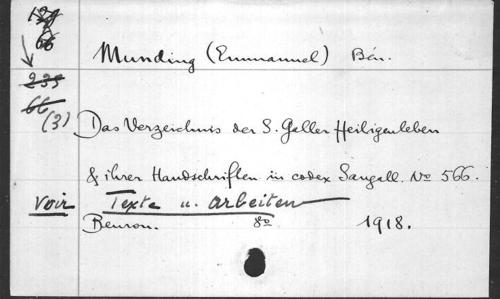 66
Munding (Emmanuel) Bén.
235
66
(3) Das Verzeichnis der S. Galler Heiligenleben
& ihrer Handschriften in codex Sangall. No 566.
voir Texte u. arbeiten
Beuron. 8o 1918.